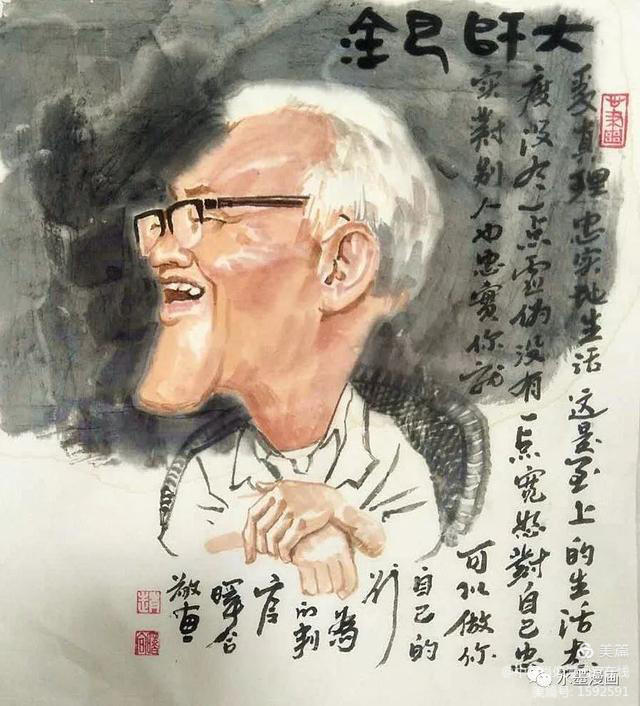 大师巴金
爱真理忠实地生活这是至上的生活态
度没有一点虚伪没有一点宽恕對自己忠
实對别人也忠實你就
可以做你
自己的
行
為
的判
官
敬画
美篇
水墨漫画
美篇号: 1592591